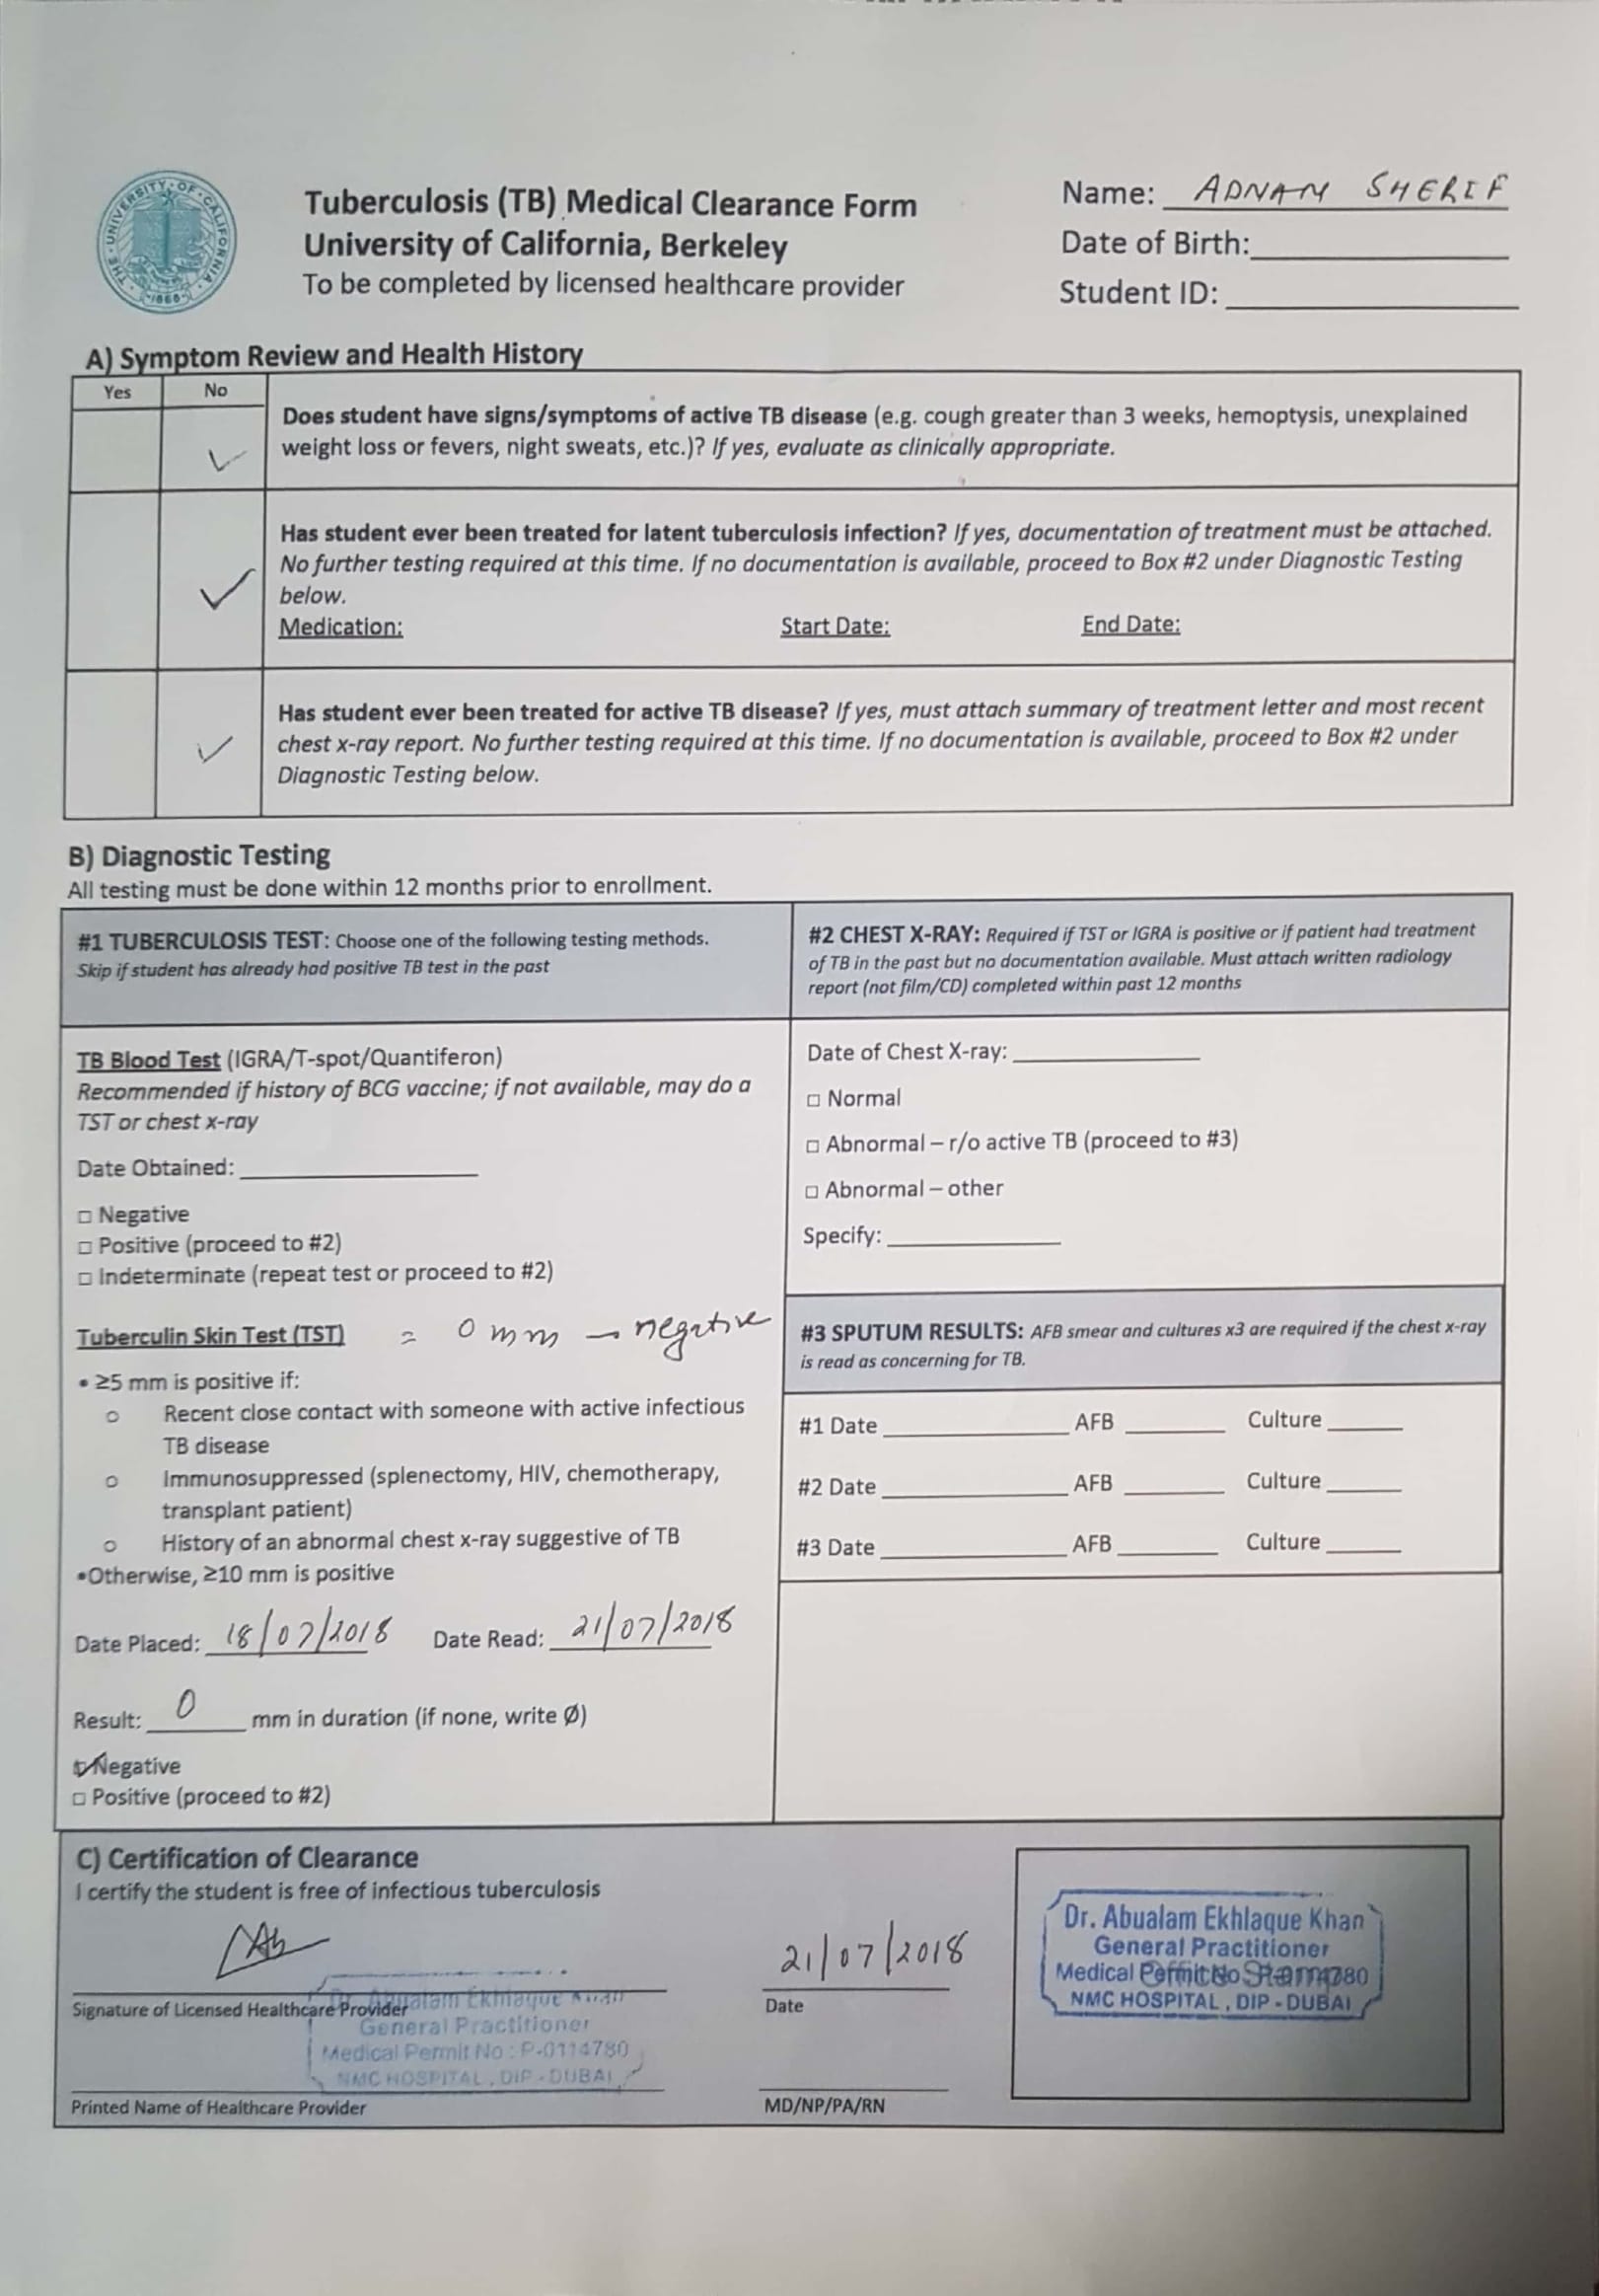 THE · UNIVERSITY · OF · CALIFORNIA · 1868 ·
Tuberculosis (TB) Medical Clearance Form
University of California, Berkeley
To be completed by licensed healthcare provider
Name: ADNAN SHERIF
Date of Birth:
Student ID:
A) Symptom Review and Health History
Yes No
Does student have signs/symptoms of active TB disease (e.g. cough greater than 3 weeks, hemoptysis, unexplained
weight loss or fevers, night sweats, etc.)? If yes, evaluate as clinically appropriate.
Has student ever been treated for latent tuberculosis infection? If yes, documentation of treatment must be attached.
No further testing required at this time. If no documentation is available, proceed to Box #2 under Diagnostic Testing
below.
Medication: Start Date: End Date:
Has student ever been treated for active TB disease? If yes, must attach summary of treatment letter and most recent
chest x-ray report. No further testing required at this time. If no documentation is available, proceed to Box #2 under
Diagnostic Testing below.
B) Diagnostic Testing
All testing must be done within 12 months prior to enrollment.
#1 TUBERCULOSIS TEST: Choose one of the following testing methods.
Skip if student has already had positive TB test in the past
TB Blood Test (IGRA/T-spot/Quantiferon)
Recommended if history of BCG vaccine; if not available, may do a
TST or chest x-ray
Date Obtained:
□ Negative
□ Positive (proceed to #2)
□ Indeterminate (repeat test or proceed to #2)
Tuberculin Skin Test (TST) = 0 mm – negative
• ≥5 mm is positive if:
o Recent close contact with someone with active infectious
TB disease
o Immunosuppressed (splenectomy, HIV, chemotherapy,
transplant patient)
o History of an abnormal chest x-ray suggestive of TB
•Otherwise, ≥10 mm is positive
Date Placed: 18/07/2018 Date Read: 21/07/2018
Result: 0 mm in duration (if none, write Ø)
☑ Negative
□ Positive (proceed to #2)
#2 CHEST X-RAY: Required if TST or IGRA is positive or if patient had treatment
of TB in the past but no documentation available. Must attach written radiology
report (not film/CD) completed within past 12 months
Date of Chest X-ray:
□ Normal
□ Abnormal – r/o active TB (proceed to #3)
□ Abnormal – other
Specify:
#3 SPUTUM RESULTS: AFB smear and cultures x3 are required if the chest x-ray
is read as concerning for TB.
#1 Date AFB Culture
#2 Date AFB Culture
#3 Date AFB Culture
C) Certification of Clearance
I certify the student is free of infectious tuberculosis
21/07/2018
Signature of Licensed Healthcare Provider
Date
Dr. Abualam Ekhlaque Khan
General Practitioner
Medical Permit No : P-0114780
NMC HOSPITAL, DIP - DUBAI
Printed Name of Healthcare Provider
MD/NP/PA/RN
Dr. Abualam Ekhlaque Khan
General Practitioner
Medical Permit No
NMC HOSPITAL, DIP - DUBAI